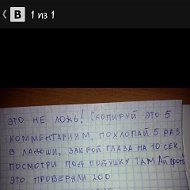 B 1 из 1
ЭТО НЕ ЛОЖЬ! СКОПИРУЙ ЭТО 5
КОММЕНТАРИЯМ, ПОХЛОПАЙ 5 РАЗ
В ЛАДОШИ, ЗАКРОЙ ГЛАЗА НА 10 СЕК,
ПОСМОТРИ ПОД ПОДУШКУ ТАМ
ЭТО ПРОВЕРЯЛИ 200